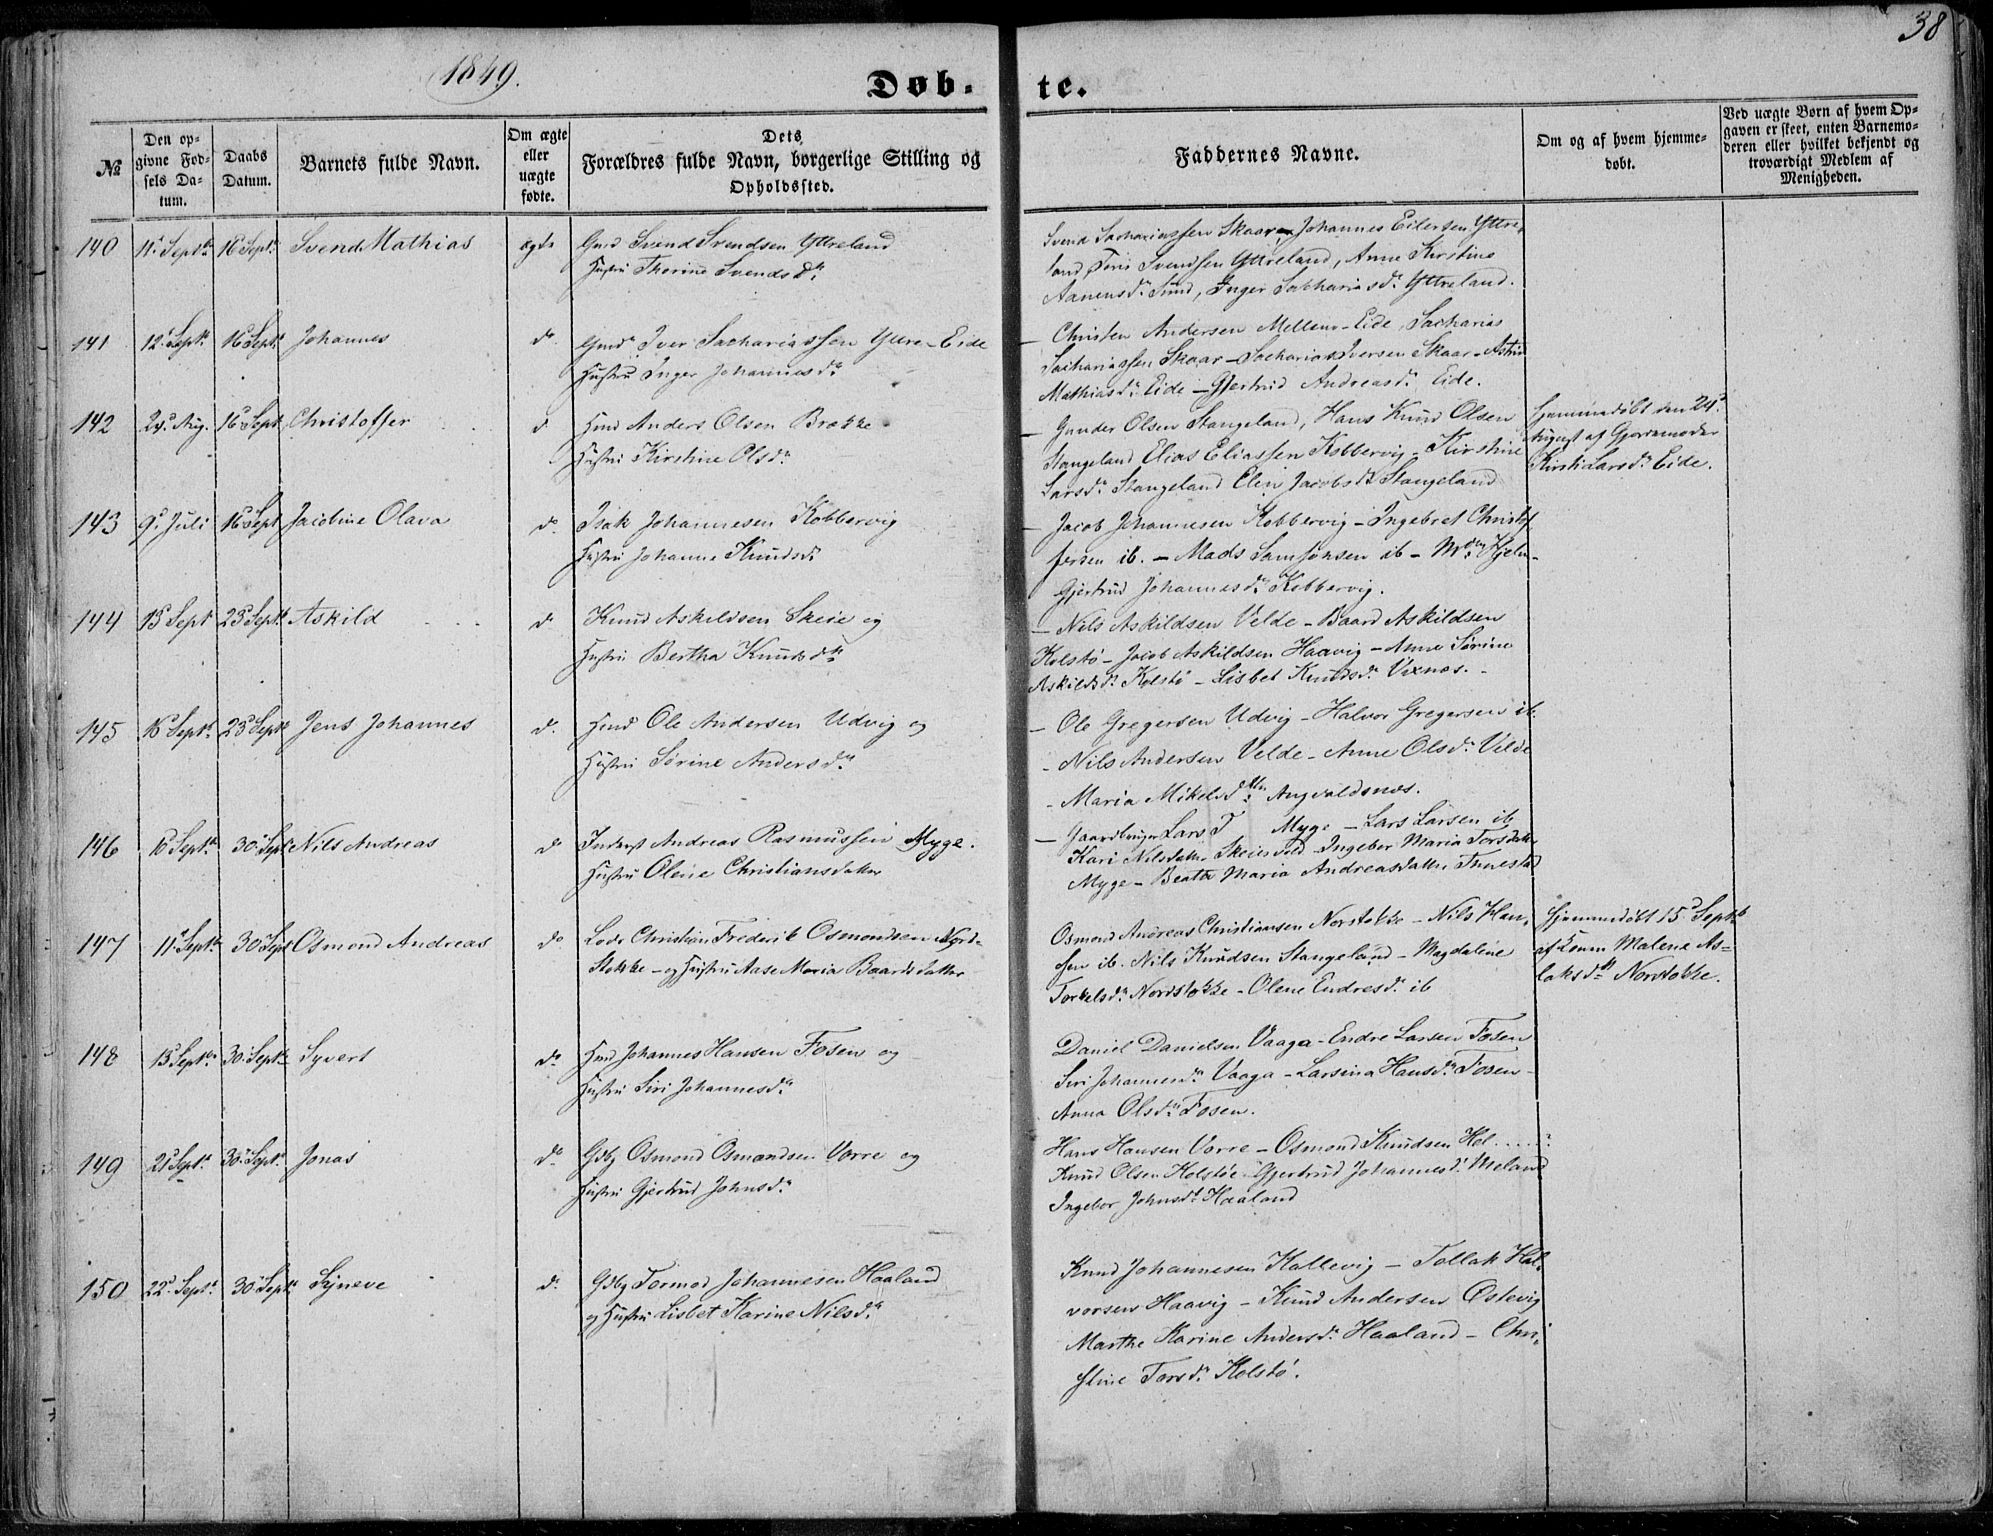 38
1849.
Døb-
te.
№
Den op-
givne Fød-
sels Da-
tum.
Daabs
Datum.
Barnets fulde Navn.
Om ægte
eller
uægte
fødte.
Dets
Forældres fulde Navn, borgerlige Stilling og
Opholdssted.
Faddernes Navne.
Om og af hvem hjemme-
døbt.
Ved uægte Børn af hvem Op-
gaven er skeet, enten Barnemo-
deren eller hvilket bekjendt og
troværdigt Medlem af
Menigheden.
140 11 Septbr 16 Septr Svend Mathias ægte Gmd Svend Svendsen Yttreland
Hustru Therine Svendsdr
Svend Sachariassen Skaar, Johannes Eilertsen Yttre-
land, Svendsen Yttreland, Anne Kirstine
Aanensdr Sund, Inger Sachariasdr Yttreland.
141 12 Septr 16 Septr Johannes do Gmd Iver Sachariassen Yttre-Eide
Hustru Inger Johannesdr
- Christen Andersen Mellem-Eide, Sacharias
Sachariassen Skaar - Sacharias Iversen Skaar - Astri
Mathiasdr Eide - Gjertrud Andreasdr Eide.
142 24 Aug. 16 Sept Christoffer d Hmd Anders Olsen Brække
Hustru Kirstine Olsdr
- Gunder Olsen Stangeland, Hans Knud Olsen
Stangeland Elias Eliassen Kobbervig - Kirstine
Larsdr Stangeland Elin Jacobsdr Stangeland
Hjemmedøbt den 24
August af Gjordemoder
Kirsti Larsdr Eide.
143 9 Juli 16 Sept Jacobine Olava do Isak Johannesen Kobbervig
Hustru Johanne Knudsdr
- Jacob Johannesen Kobbervig - Ingebret Christof-
fersen ib. - Mads Samsonsen ib - Hjelm-
Gjertrud Johannesdr Kobbervig.
144 15 Sept 23 Septr Askild do Knud Askildsen Skeie og
Hustru Bertha Knudsdr
- Nils Askildsen Velde - Baard Askildsen
Kolstø - Jacob Askildsen Haavig - Anne Sørine
Askildsdr Kolstø - Lisbet Knudsdr Vixnes. -
145 16 Septr 23 Septr Jens Johannes do Hmd Ole Andersen Udvig og
Hustru Sørine Andersdr
- Ole Gregersen Udvig - Halvor Gregersen ib.
- Nils Andersen Velde - Anne Olsdr Velde
- Maria Mikelsdtr Augvaldsnes.
146 16 Septr 30 Sept Nils Andreas do Inderst Andreas Rasmussen Myge.
Hustru Olene Christiansdatter
- Gaardbruger Lars T Myge - Lars Larsen ib
Kari Nilsdatter Skeisvold - Ingebor Maria Torsdatter
Myge - Beathe Maria Andreasdatter
147 11 Septr 30 Sept Osmond Andreas do Lods Christian Frederik Osmondsen Nord-
Stokke - og Hustru Aase Maria Baardsdatter
Osmond Andreas Christiansen Norstokke - Nils Han-
sen ib. Nils Knudsen Stangeland - Magdalene
Torkelsdr Nordstokke - Olene Endresdr ib
Hjemmedøbt 15 Septbr
af Konen Malena As-
laksdtr Norstokke.
148 15 Septr 30 Septr Syvert do Hmd Johannes Hansen Fosen og
Hustru Siri Johannesdr
Daniel Danielsen Vaaga - Endre Larsen Fosen
Siri Johannesdr Vaaga - Larsina Hansdr Fosen -
Anna Olsdr Fosen.
149 21 Septr 30 Septr Jonas do Gdbg Osmond Osmondsen Vorre og
Hustru Gjertrud Johnsdr
Hans Hansen Vorre - Osmond Knudsen Hol.....
Knud Olsen Holstøe - Gjertrud Johannesdr Meland
Ingebor Johnsdr Haaland
150 22 Septr 30 Septr Syneve do Gdbg Tormod Johannesen Haaland
og Hustru Lisbet Karine Nilsdr
Knud Johannesen Kallevig - Tollak Hal-
vorsen Haavig - Knud Andersen Østevig
Marthe Karine Andersdr Haaland - Chri-
stine Torsdr Kolstø.